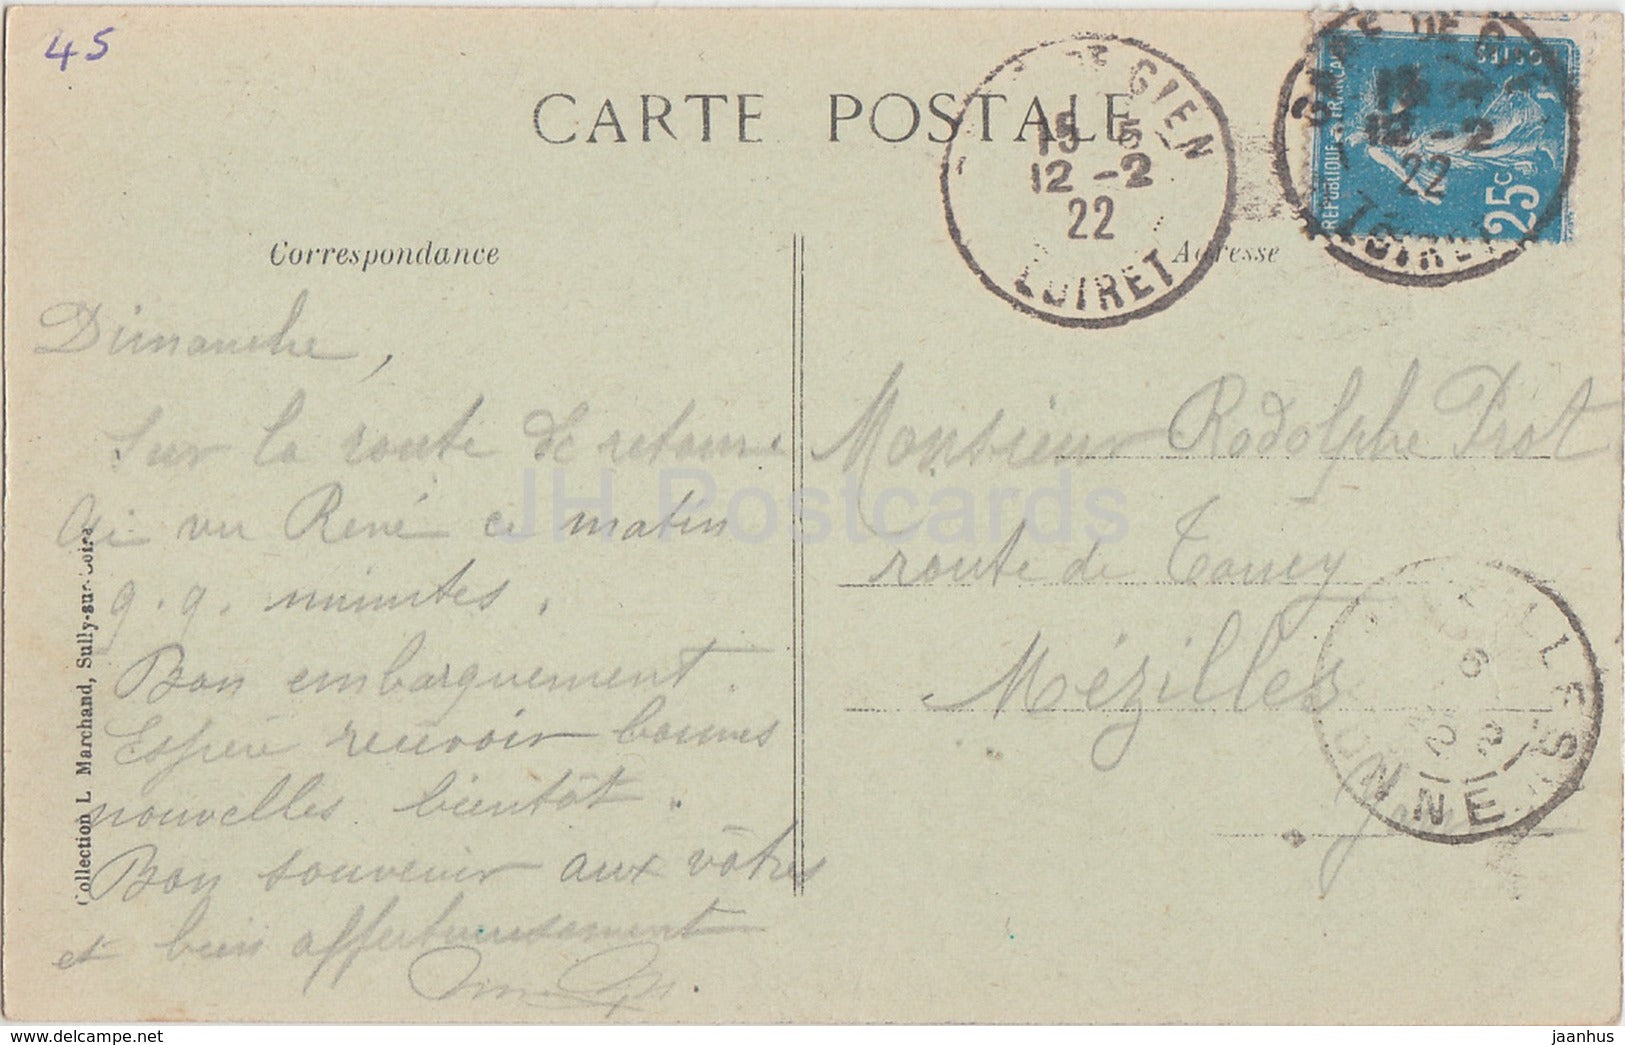 45
CARTE POSTALE
DE GIEN
15 5
12 -2
22
LOIRET
GARE DE GIEN
12 -2
22
LOIRET
POSTES
REPUBLIQUE FRANCAISE
25c
Correspondance
Adresse
Dimanche,
Sur la route de retour
ai vu René ce matin
q. q. minutes.
Bon embarquement.
Espère recevoir bonnes
nouvelles bientôt.
Bon souvenir aux vôtres
et bien affectueusement
Monsieur Rodolphe Prot
route de Toucy
Mézilles
Yonne
MEZILLES
YONNE
Collection L. Marchand, Sully-sur-Loire
JH Postcards
https://www.jaanhus.com/
jaanhus